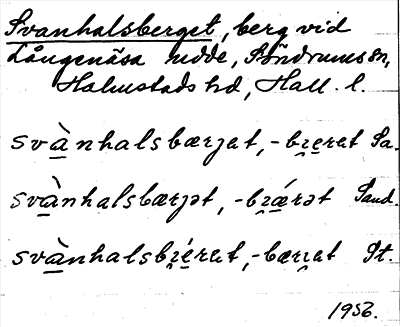 Svanhalsberget, berg vid
Långenäsa udde, Söndrums sn,
Halmstads hd, Hall. l.
svànhalsbærjat, -bɪ̯erat Sa.
svànhalsbærjət, -bɪ̯ǽrət Sand.
svànhalsbɪ̯érat, -bærɪ̯at St.
1956.